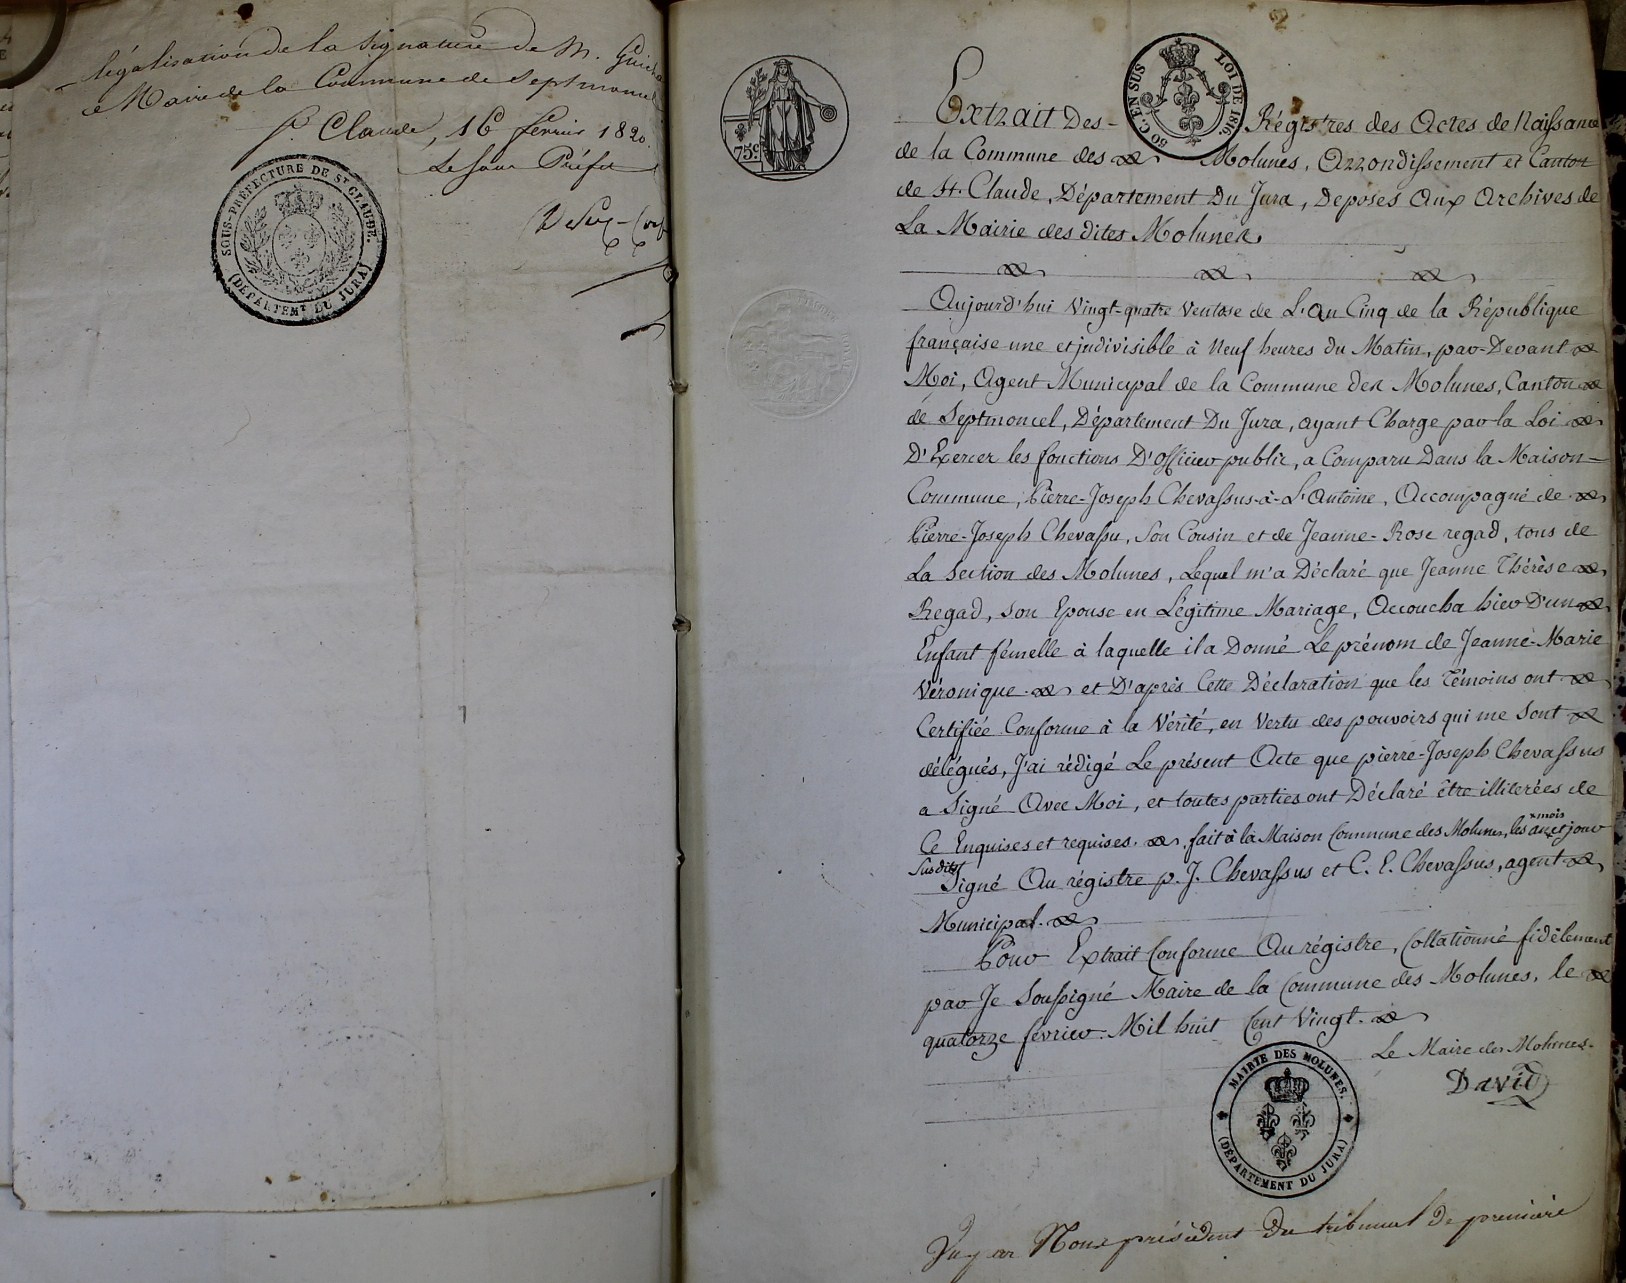 légalisation de la signature de M. Guich
e Maire de la Commune de Septmoncel
St Claude, 16 février 1820
Le Sous Préfet
SOUS-PRÉFECTURE DE St CLAUDE.
(DÉPARTEMt DU JURA)
2
75c.
50 C. EN SUS
LOI DE 1816.
Extrait Des Régistres des Actes de Naissance
de la Commune des Molunes, Arrondissement et Canton
de St. Claude, Département Du Jura, Deposés Aux Archives de
La Mairie des dites Molunes.
Aujourd'hui Vingt-quatre Ventose de L'an Cinq de la République
française une et indivisible à Neuf heures du Matin, par-Devant
Moi, Agent Municipal de la Commune des Molunes, Canton
de Septmoncel, Département Du Jura, ayant Charge par la Loi
D'Exercer les fonctions D'officier public, a Comparu Dans la Maison-
Commune, Pierre-Joseph Chevassus-à-L'Antoine, Accompagné de
Pierre-Joseph Chevassu, Son Cousin et de Jeanne-Rose regad, tous de
La Section des Molunes, Lequel m'a Déclaré que Jeanne Thérèse
Regad, Son Epouse en Légitime Mariage, Accoucha hier D'un
Enfant fémelle à laquelle il a Donné Le prénom de Jeanne-Marie
Véronique et D'après Cette Déclaration que les Témoins ont
Certifiée Conforme à la Vérité, en Vertu des pouvoirs qui me Sont
délégués, J'ai rédigé Le présent Acte que pierre-Joseph Chevassus
a Signé Avec Moi, et toutes parties ont Déclaré être illiterées de
Ce Enquises et requises. fait à la Maison Commune des Molunes, les an, mois et jour
Susdits
Signé Au régistre p. J. Chevassus et C. E. Chevassus, agent
Municipal.
Pour Extrait Conforme Au régistre, Collationné fidèlement
par Je Soussigné Maire de la Commune des Molunes, le
quatorze février Mil huit Cent Vingt.
Le Maire des Molunes.
David
MAIRIE DES MOLUNES,
(DÉPARTEMENT DU JURA)
Vu par Nous président Du tribunal De première